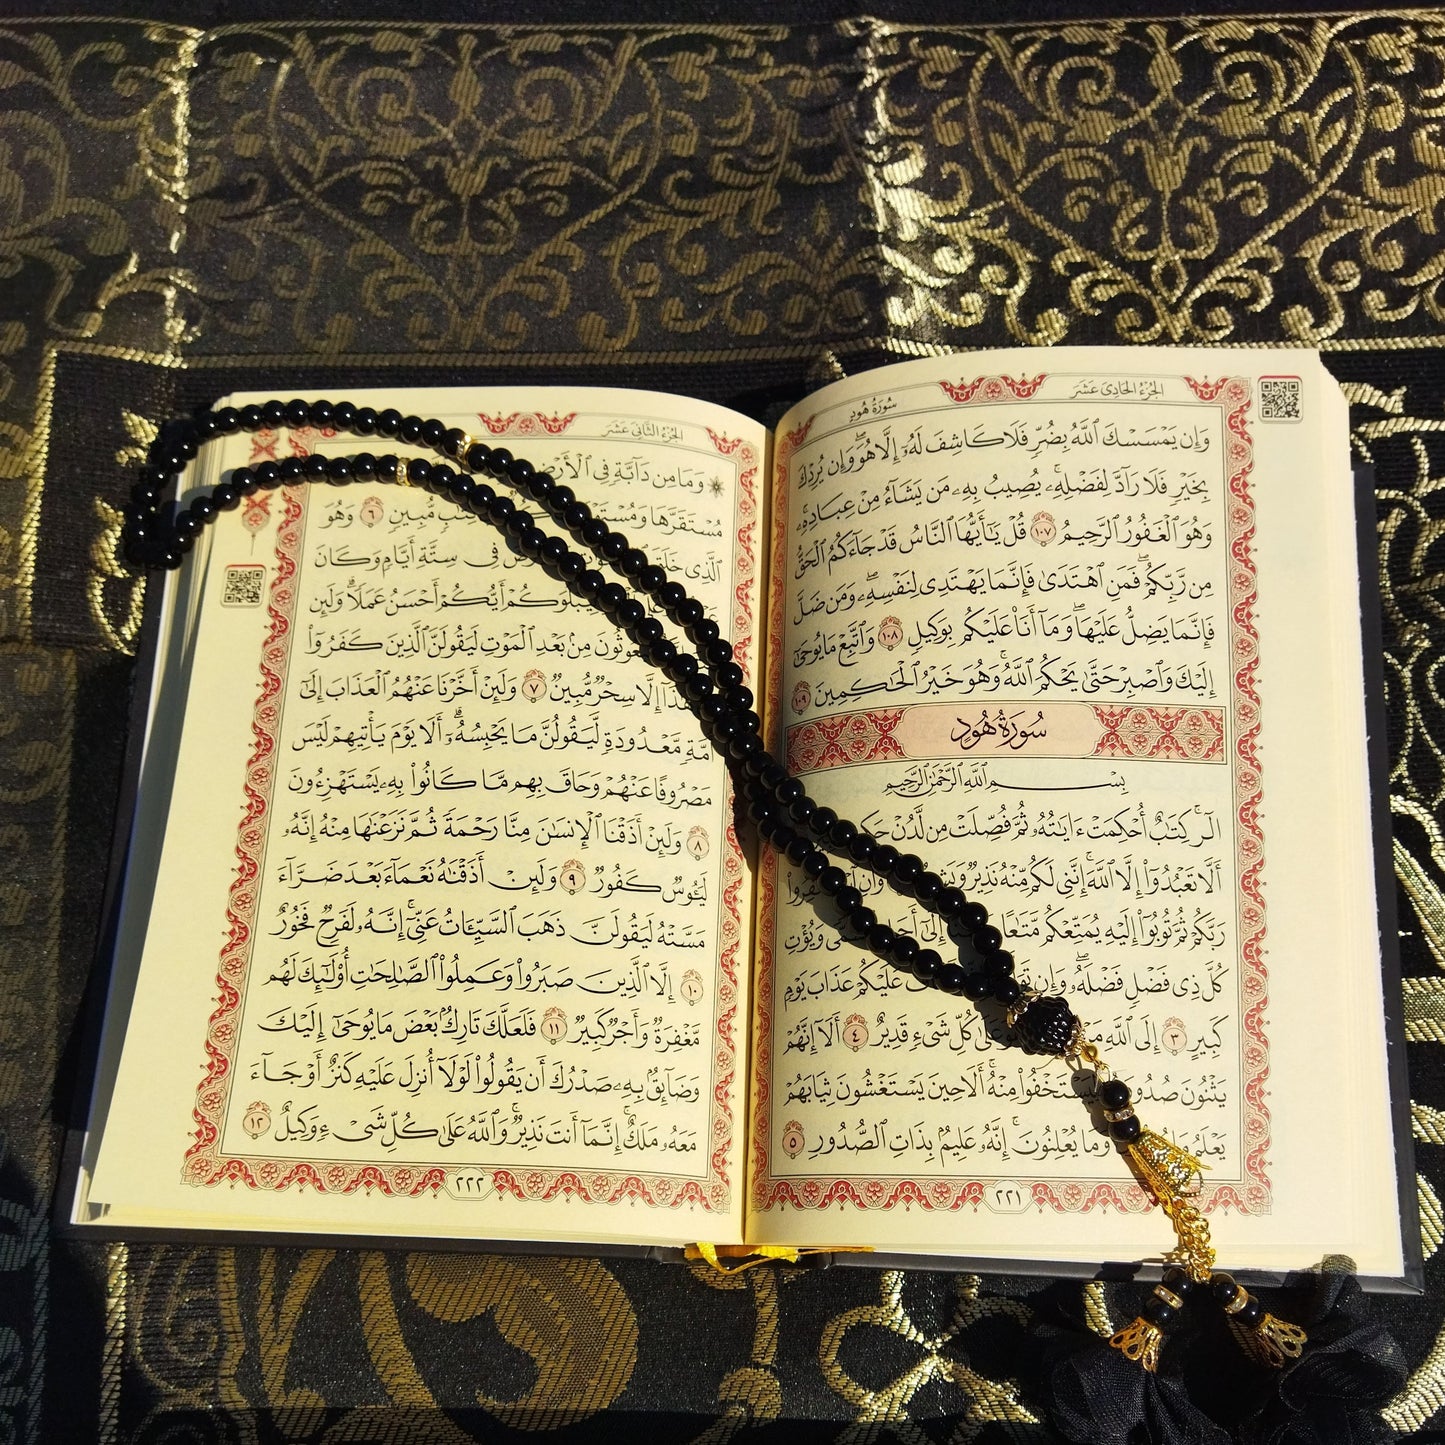 الجزء الحادي عشر
سورة هود
وَإِن يَمْسَسْكَ ٱللَّهُ بِضُرٍّ فَلَا كَاشِفَ لَهُۥٓ إِلَّا هُوَۖ وَإِن يُرِدْكَ
بِخَيْرٍ فَلَا رَآدَّ لِفَضْلِهِۦۚ يُصِيبُ بِهِۦ مَن يَشَآءُ مِنْ عِبَادِهِۦۚ
وَهُوَ ٱلْغَفُورُ ٱلرَّحِيمُ ١٠٧ قُلْ يَٰٓأَيُّهَا ٱلنَّاسُ قَدْ جَآءَكُمُ ٱلْحَقُّ
مِن رَّبِّكُمْۖ فَمَنِ ٱهْتَدَىٰ فَإِنَّمَا يَهْتَدِى لِنَفْسِهِۦۖ وَمَن ضَلَّ
فَإِنَّمَا يَضِلُّ عَلَيْهَاۖ وَمَآ أَنَا۠ عَلَيْكُم بِوَكِيلٍ ١٠٨ وَٱتَّبِعْ مَا يُوحَىٰٓ
إِلَيْكَ وَٱصْبِرْ حَتَّىٰ يَحْكُمَ ٱللَّهُۚ وَهُوَ خَيْرُ ٱلْحَٰكِمِينَ ١٠٩
سُورَةُ هُودٍ
بِسْمِ ٱللَّهِ ٱلرَّحْمَٰنِ ٱلرَّحِيمِ
الٓرۚ كِتَٰبٌ أُحْكِمَتْ ءَايَٰتُهُۥ ثُمَّ فُصِّلَتْ مِن لَّدُنْ
أَلَّا تَعْبُدُوٓا۟ إِلَّا ٱللَّهَۚ إِنَّنِى لَكُم مِّنْهُ نَذِيرٌ
رَبَّكُمْ ثُمَّ تُوبُوٓا۟ إِلَيْهِ يُمَتِّعْكُم مَّتَٰعًا إِلَىٰٓ وَيُؤْتِ
كُلَّ ذِى فَضْلٍ فَضْلَهُۥۖ وَإِن عَلَيْكُمْ عَذَابَ يَوْمٍ
كَبِيرٍ ٣ إِلَى ٱللَّهِ كُلِّ شَىْءٍ قَدِيرٌ ٤ أَلَآ إِنَّهُمْ
يَثْنُونَ لِيَسْتَخْفُوا۟ مِنْهُۚ أَلَا حِينَ يَسْتَغْشُونَ ثِيَابَهُمْ
يَعْلَمُ وَمَا يُعْلِنُونَۚ إِنَّهُۥ عَلِيمٌۢ بِذَاتِ ٱلصُّدُورِ ٥
٢٢١
الجزء الثاني عشر
وَمَا مِن دَآبَّةٍ فِى ٱلْأَرْضِ
مُسْتَقَرَّهَا مُّبِينٍ ٦ وَهُوَ
ٱلَّذِى خَلَقَ فِى سِتَّةِ أَيَّامٍ وَكَانَ
لِيَبْلُوَكُمْ أَيُّكُمْ أَحْسَنُ عَمَلًاۗ وَلَئِن
مِنۢ بَعْدِ ٱلْمَوْتِ لَيَقُولَنَّ ٱلَّذِينَ كَفَرُوٓا۟
إِلَّا سِحْرٌ مُّبِينٌ ٧ وَلَئِنْ أَخَّرْنَا عَنْهُمُ ٱلْعَذَابَ إِلَىٰٓ
أُمَّةٍ مَّعْدُودَةٍ لَّيَقُولُنَّ مَا يَحْبِسُهُۥٓۗ أَلَا يَوْمَ يَأْتِيهِمْ لَيْسَ
مَصْرُوفًا عَنْهُمْ وَحَاقَ بِهِم مَّا كَانُوا۟ بِهِۦ يَسْتَهْزِءُونَ
٨ وَلَئِنْ أَذَقْنَا ٱلْإِنسَٰنَ مِنَّا رَحْمَةً ثُمَّ نَزَعْنَٰهَا مِنْهُ إِنَّهُۥ
لَيَـُٔوسٌ كَفُورٌ ٩ وَلَئِنْ أَذَقْنَٰهُ نَعْمَآءَ بَعْدَ ضَرَّآءَ
مَسَّتْهُ لَيَقُولَنَّ ذَهَبَ ٱلسَّيِّـَٔاتُ عَنِّىٓۚ إِنَّهُۥ لَفَرِحٌ فَخُورٌ
١٠ إِلَّا ٱلَّذِينَ صَبَرُوا۟ وَعَمِلُوا۟ ٱلصَّٰلِحَٰتِ أُو۟لَٰٓئِكَ لَهُم
مَّغْفِرَةٌ وَأَجْرٌ كَبِيرٌ ١١ فَلَعَلَّكَ تَارِكٌۢ بَعْضَ مَا يُوحَىٰٓ إِلَيْكَ
وَضَآئِقٌۢ بِهِۦ صَدْرُكَ أَن يَقُولُوا۟ لَوْلَآ أُنزِلَ عَلَيْهِ كَنزٌ أَوْ جَآءَ
مَعَهُۥ مَلَكٌۚ إِنَّمَآ أَنتَ نَذِيرٌۚ وَٱللَّهُ عَلَىٰ كُلِّ شَىْءٍ وَكِيلٌ ١٢
٢٢٢